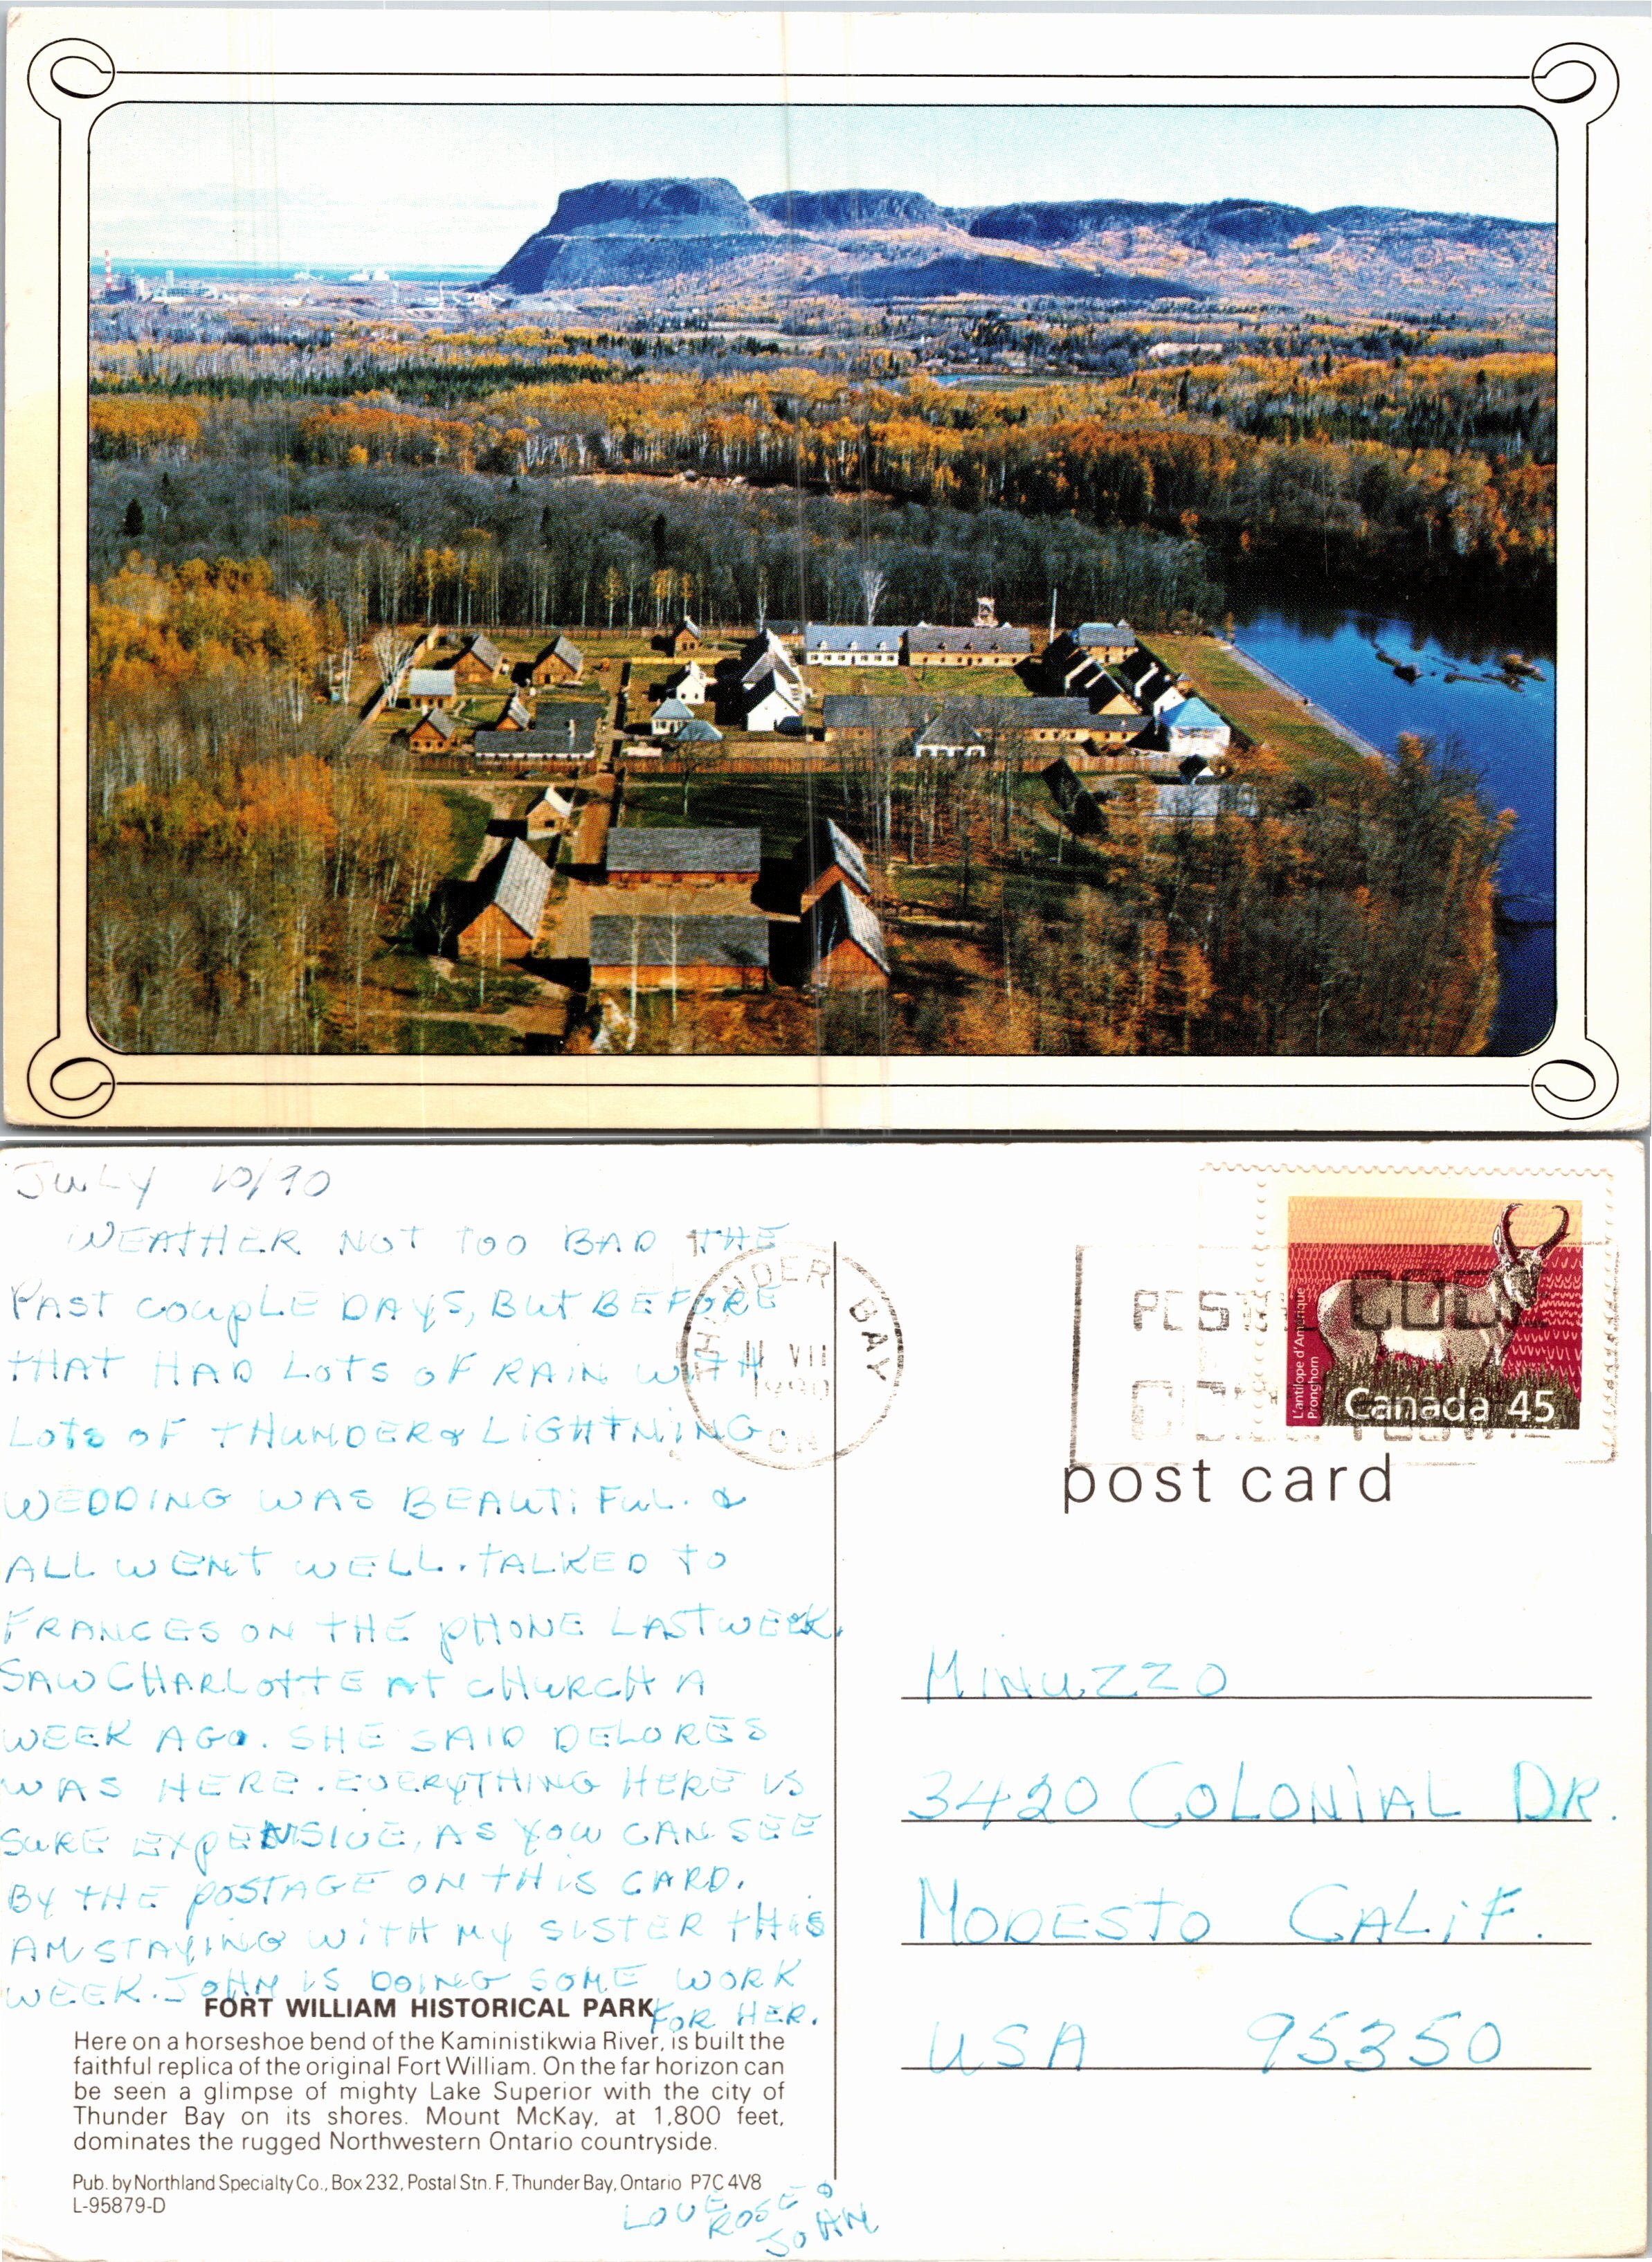 July 10/90
WEATHER NOT TOO BAD THE
PAST COUPLE DAYS, BUT BEFORE
THAT HAD LOTS OF RAIN WITH
LOTS OF THUNDER & LIGHTNING.
WEDDING WAS BEAUTIFUL. &
ALL WENT WELL. TALKED TO
FRANCES ON THE PHONE LAST WEEK.
SAW CHARLOTTE AT CHURCH A
WEEK AGO. SHE SAID DELORES
WAS HERE. EVERYTHING HERE IS
SURE EXPENSIVE, AS YOU CAN SEE
BY THE POSTAGE ON THIS CARD.
AM STAYING WITH MY SISTER THIS
WEEK. JOHN IS DOING SOME WORK
FOR HER.
FORT WILLIAM HISTORICAL PARK
Here on a horseshoe bend of the Kaministikwia River, is built the
faithful replica of the original Fort William. On the far horizon can
be seen a glimpse of mighty Lake Superior with the city of
Thunder Bay on its shores. Mount McKay, at 1,800 feet,
dominates the rugged Northwestern Ontario countryside.
Pub. by Northland Specialty Co., Box 232, Postal Stn. F, Thunder Bay, Ontario P7C 4V8
L-95879-D
LOVE
ROSE &
JOHN
THUNDER BAY
11 VII
1990
ON
POSTAL CODE
L'antilope d'Amérique
Pronghorn
Canada 45
post card
MINUZZO
3420 COLONIAL DR.
MODESTO CALIF.
USA 95350